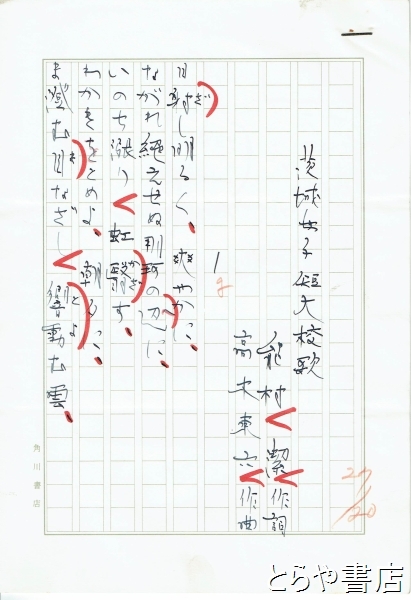 茨城女子短大校歌
能村 潔 作詞
高木東六 作曲
1
日射し明るく、爽やかに、
ながれ絶えせぬ那珂の辺に、
いのち漲り 虹翳す、
わかきをとめよ、朝夕に、
ま澄む目なざし 響動む雲、
角川書店
とらや書店